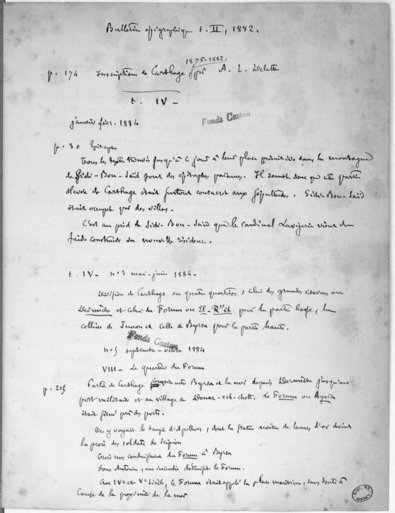 Bulletin épigraphique t. II, 1882.
1875-1882,
p. 174 Inscriptions de Carthage par A. L. Delattre
t. IV –
janvier févr. 1884
Fonds Castan
p. 30
Tous les trouvés jusqu'à ce jour à leur place primitive dans la montagne
de Sidi-Bou-Saïd sont des épitaphes païennes. Il semble donc que cette partie
élevée de Carthage était surtout consacrée aux sépultures. Sidi-Bou-Saïd
était occupé par des villas.
C'est au pied de Sidi-Bou-Saïd que le cardinal Lavigerie vient de
faire construire sa nouvelle résidence.
t. IV – n° 3 mai-juin 1884 –
Division de Carthage en quatre quartiers : celui des grandes citernes, ou
Dermèche et celui du Forum ou pour la partie basse, les
collines de Junon et celle de Byrsa pour la partie haute.
Fonds Castan
n° 5 septembre - octobre 1884
VIII – Le quartier du Forum
p. 205
Partie de Carthage entre Byrsa et la mer depuis Dermèche jusqu'aux
port militaire et au village de Douar-ech-chott. Le Forum ou
était situé près des ports.
On y voyait le temple d'Apollon, dont la statue revêtue de lames d'or devint
la proie des soldats de Scipion
Trois rues conduisaient du Forum à Byrsa
Sous Antonin, un incendie détruisit le Forum.
Au IVe et Ve siècle, le Forum était appelé la place maritime, sans doute à
cause de la proximité de la mer